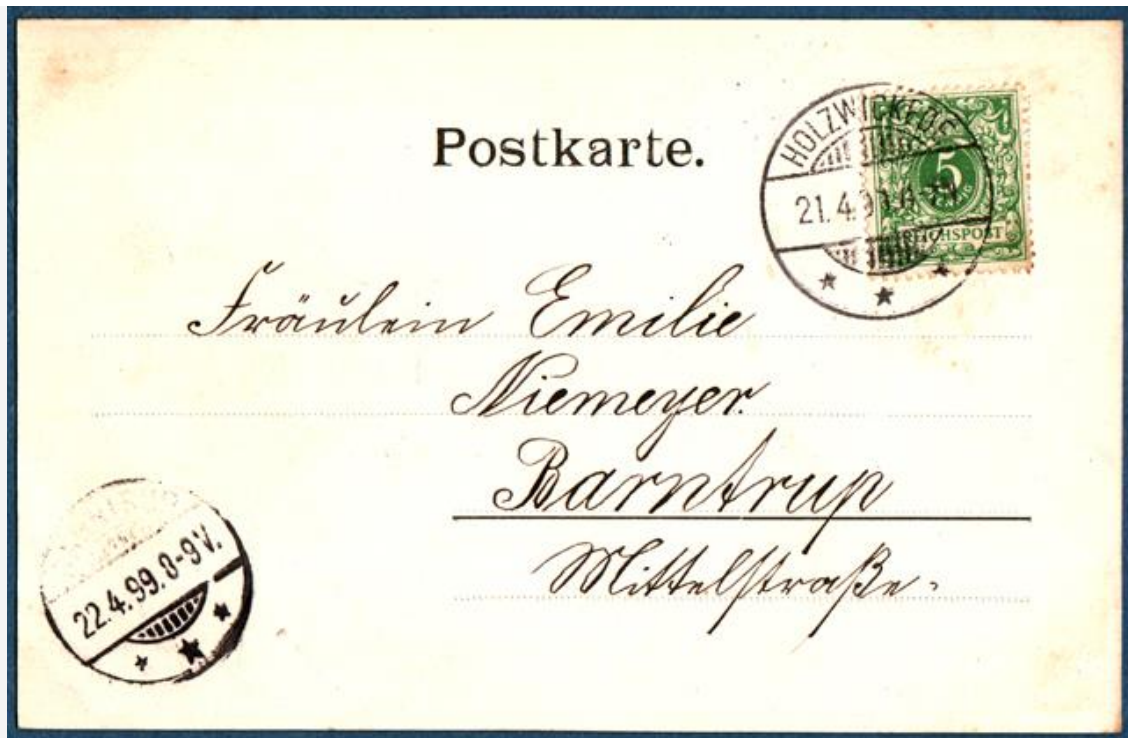 Postkarte.
HOLZWICKEDE
21.4.99
5
PFENNIG
REICHSPOST
Fräulein Emilie
Niemeyer.
Barntrup
Mittelstraße.
22.4.99.8-9V.